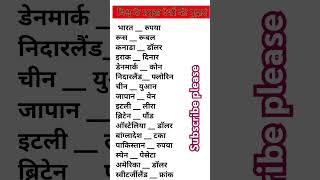 विश्व के प्रमुख देशों की मुद्राएं
भारत __ रुपया
रूस __ रूबल
कनाडा __ डॉलर
इराक __ दिनार
डेनमार्क __ क्रोन
निदारलैंड__ फ्लोरिन
चीन __ युआन
जापान __ येन
इटली __ लीरा
ब्रिटेन __ पौंड
ऑस्टेलिया __ डॉलर
बांग्लादेश __ टका
पाकिस्तान __ रुपया
स्पेन __ पेसेटा
अमेरिका __ डॉलर
स्वीटर्जीलैंड __ फ्रांक
Subscribe please
डेनमार्क
निदारलैंड
चीन __
जापान __
इटली __
ब्रिटेन
be please